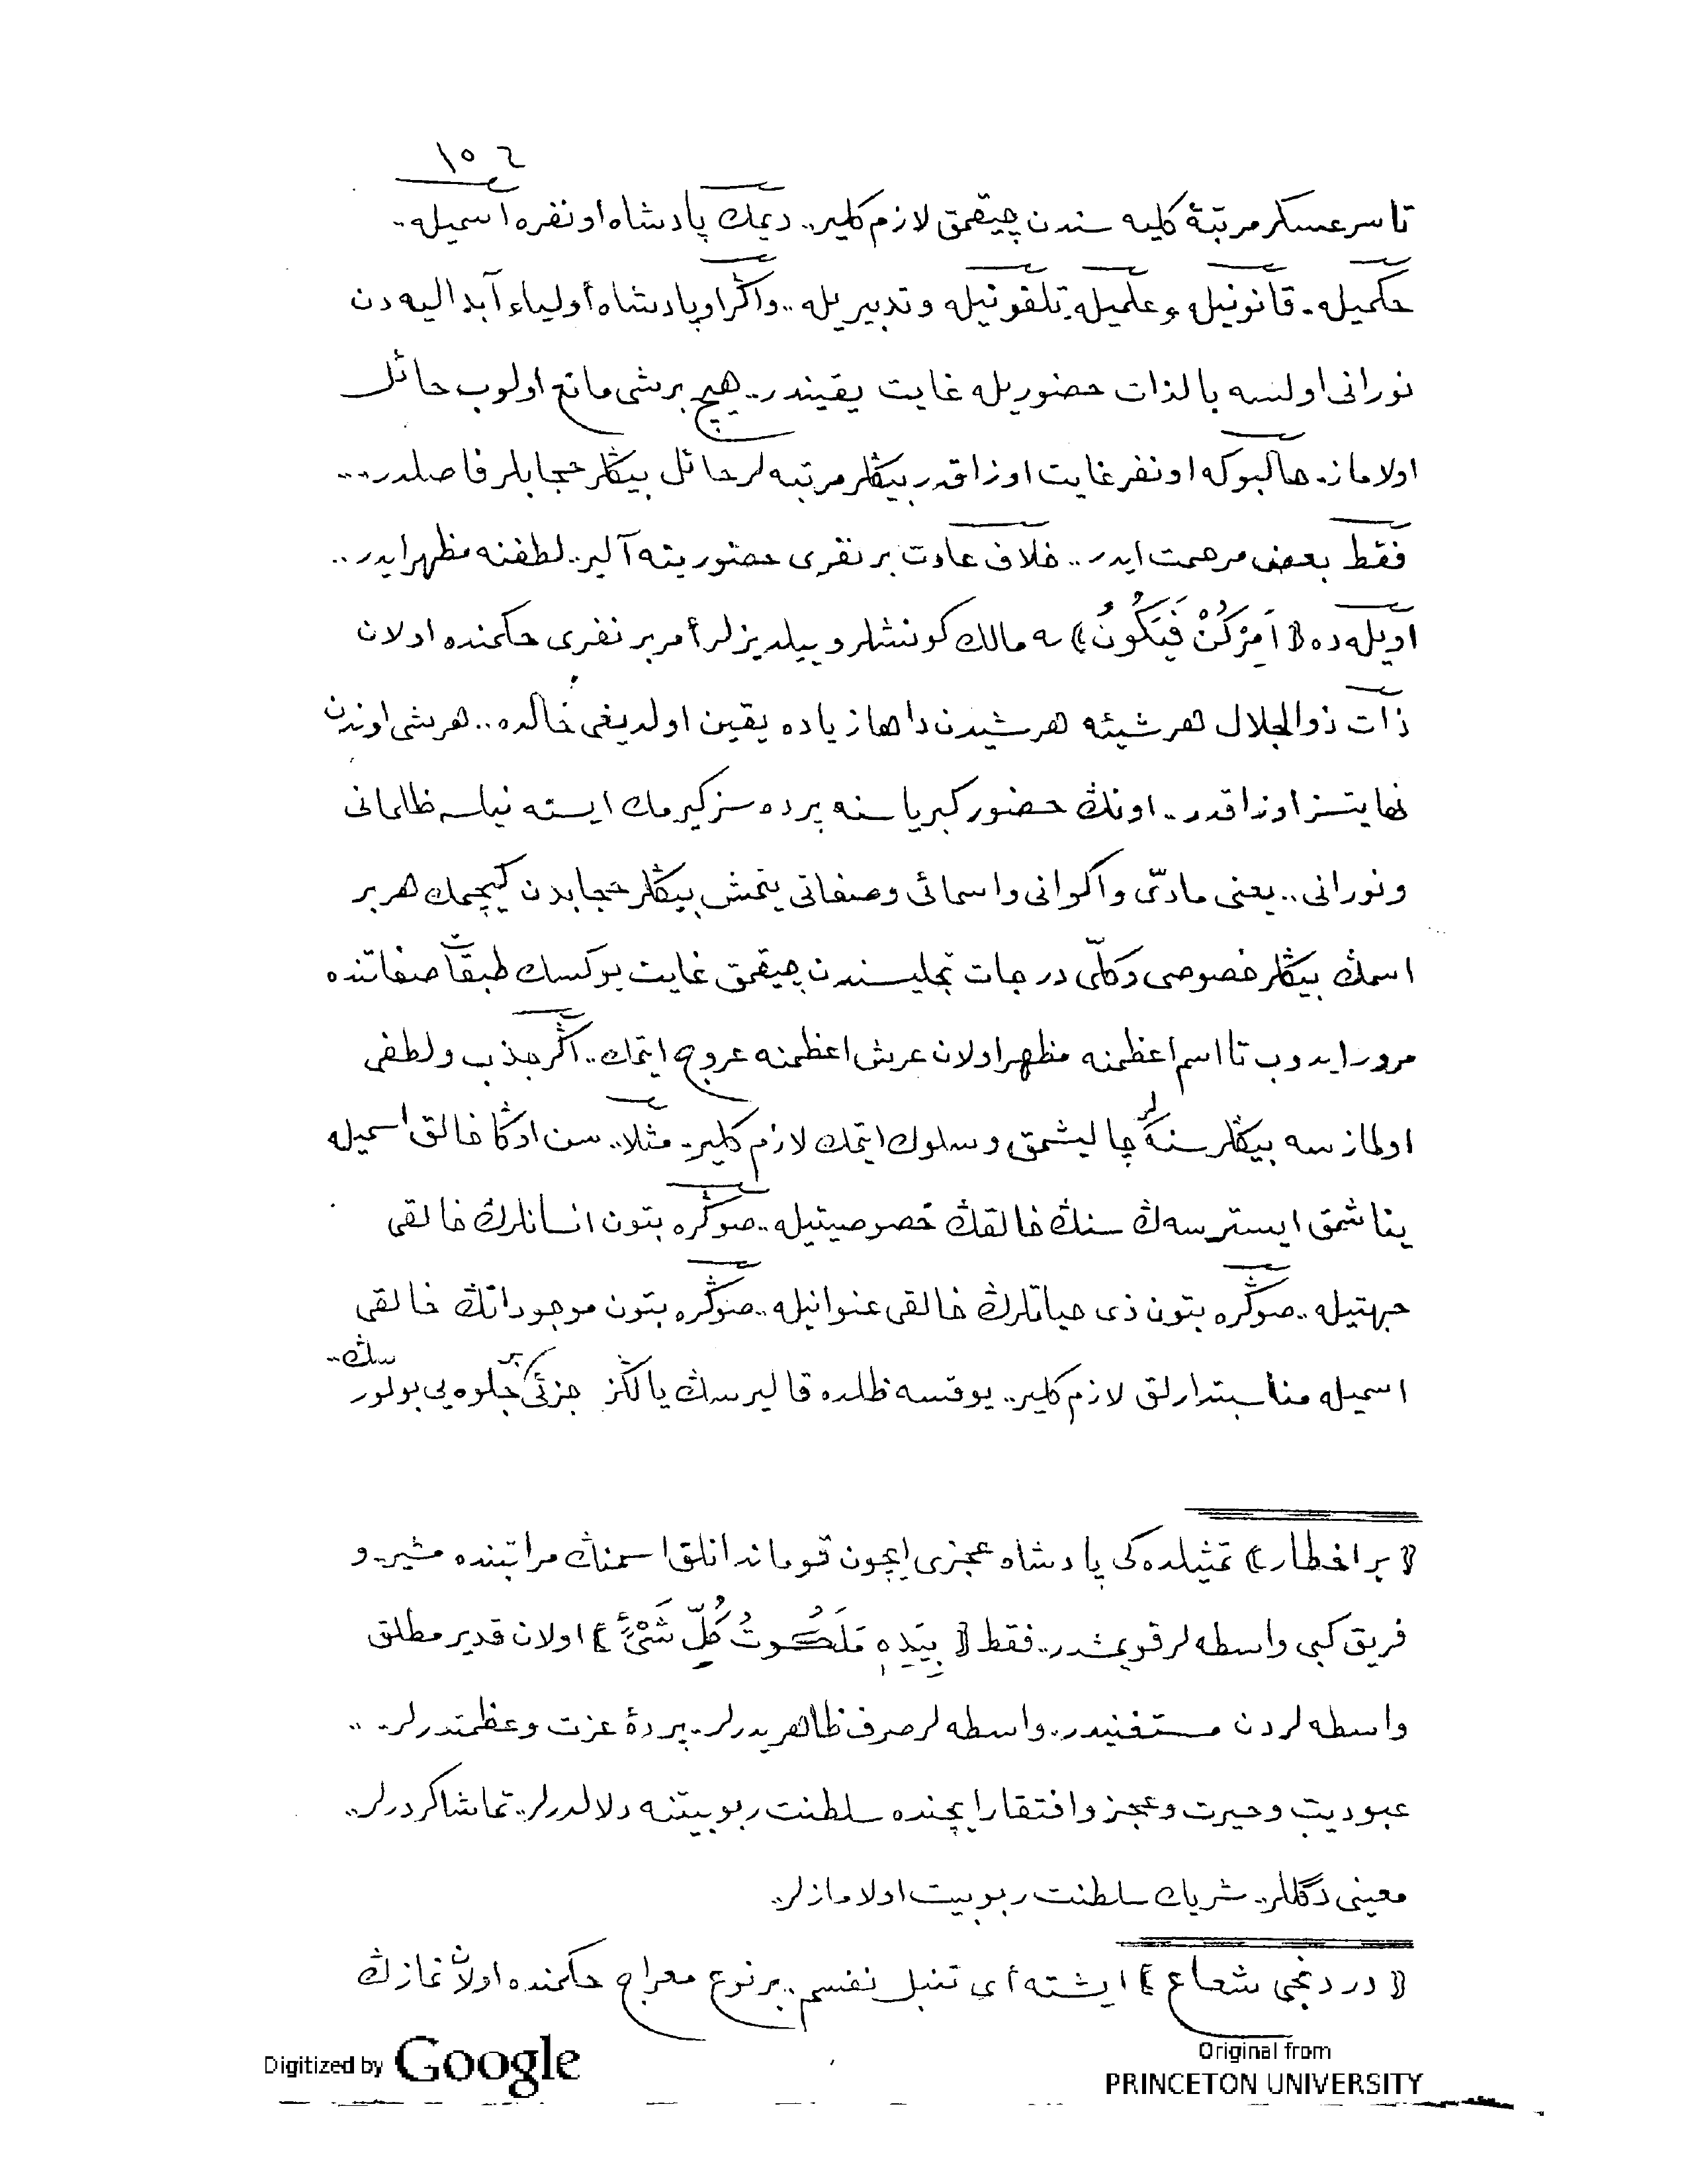 ١٥٤
تا سرعسكر مرتبۀ كليه سندن چيقمق لازم كلير.. ديمك پادشاه او نفره اسميله..
حكميله. قانونيله و علميله. تلفونيله و تدبيريله.. واگر او پادشاه أولياء آبداليه دن
نورانى اولسه بالذات حضوريله غايت يقيندر.. هيچ برشى مانع اولوب حائل
اولاماز. حالبوكه او نفر غايت اوزاقدر بيڭلر مرتبه لر حائل بيڭلر حجابلر فاصلدر...
فقط بعض مرحمت ايدر.. خلاف عادت بر نفرى حضورينه آلير.. لطفنه مظهر ايدر..
اويله ده ﴿اَمْرِ كُنْ فَيَكُونُ﴾ ه مالك كونشلر و ييلديزلر أمربر نفرى حكمنده اولان
ذات ذوالجلال هر شيئه هر شيدن داها زياده يقين اولديغى حالده.. هرشى اوندن
نهايتسز اوزاقدر.. اونڭ حضور كبرياسنه پرده سز كيرمك ايسته نيلسه ظلمانى
و نورانى.. يعنى مادّى و اكوانى و اسمائى و صفاتى يتمش بيڭلر حجابدن كيچمك هر بر
اسمڭ بيڭلر خصوصى و كلّى درجات تجليسندن چيقمق غايت يوكسك طبقات صفاتنده
مرور ايدوب تا اسم اعظمنه مظهر اولان عرش اعظمنه عروج ايتمك.. اگر جذب و لطفى
اولماز سه بيڭلر سنه لر چاليشمق و سلوك ايتمك لازم كلير.. مثلا.. سن اوڭا خالق اسميله
يناشمق ايسترسه ڭ سنڭ خالقڭ خصوصيتيله.. صوڭره بتون انسانلرڭ خالقى
جهتيله.. صوڭره بتون ذى حياتلرڭ خالقى عنوانيله.. صوڭره بتون موجوداتڭ خالقى
اسميله مناسبتدارلق لازم كلير.. يوقسه ظلده قاليرسڭ يالڭز جزئى بر جلوه يى بولورسڭ..
﴿بر اخطار﴾ تمثيلده كى پادشاه عجزى ايچون قوماندانلق اسمنڭ مراتبنده مشير و
فريق كبى واسطه لر قويمشدر.. فقط ﴿بِيَدِهِ مَلَكُوتُ كُلِّ شَىْءٍ﴾ اولان قدير مطلق
واسطه لردن مستغنيدر.. واسطه لر صرف ظاهريدرلر. پردۀ عزت و عظمتدرلر..
عبوديت و حيرت و عجز و افتقار ايچنده سلطنت ربوبيتنه دلالدرلر.. تماشاكردرلر..
معينى دگللر.. شريك سلطنت ربوبيت اولامازلر..
﴿دردنجى شعاع﴾ ايشته أى تنبل نفسم.. بر نوع معراج حكمنده اولان نمازڭ
Digitized by Google
Original from
PRINCETON UNIVERSITY